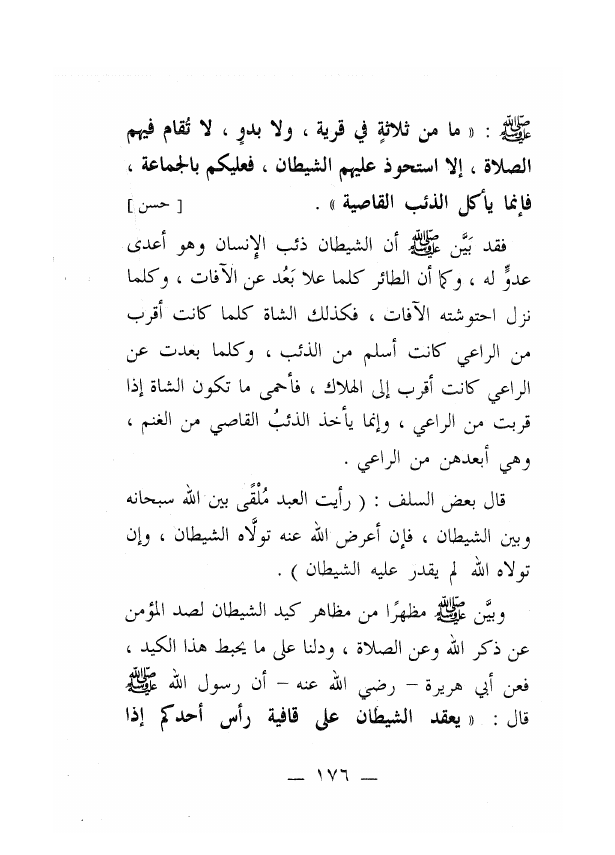 ﷺ : « ما من ثلاثةٍ في قرية ، ولا بدوٍ ، لا تُقام فيهم
الصلاة ، إلا استحوذ عليهم الشيطان ، فعليكم بالجماعة ،
فإنما يأكل الذئب القاصية » . [ حسن ]
فقد بَيَّن ﷺ أن الشيطان ذئب الإِنسان وهو أعدى
عدوٍّ له ، وكما أن الطائر كلما علا بَعُد عن الآفات ، وكلما
نزل احتوشته الآفات ، فكذلك الشاة كلما كانت أقرب
من الراعي كانت أسلم من الذئب ، وكلما بعدت عن
الراعي كانت أقرب إلى الهلاك ، فأحمى ما تكون الشاة إذا
قربت من الراعي ، وإنما يأخذ الذئبُ القاصي من الغنم ،
وهي أبعدهن من الراعي .
قال بعض السلف : ( رأيت العبد مُلْقًى بين الله سبحانه
وبين الشيطان ، فإن أعرض الله عنه تولَّاه الشيطان ، وإن
تولاه الله لم يقدر عليه الشيطان ) .
وبيَّن ﷺ مظهرًا من مظاهر كيد الشيطان لصد المؤمن
عن ذكر الله وعن الصلاة ، ودلنا على ما يحبط هذا الكيد ،
فعن أبي هريرة – رضي الله عنه – أن رسول الله ﷺ
قال : « يعقد الشيطان على قافية رأس أحدكم إذا
— ١٧٦ —